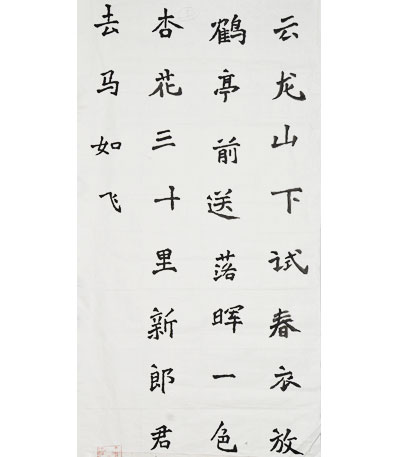 云龙山下试春衣放
鹤亭前送落晖一色
杏花三十里新郎君
去马如飞